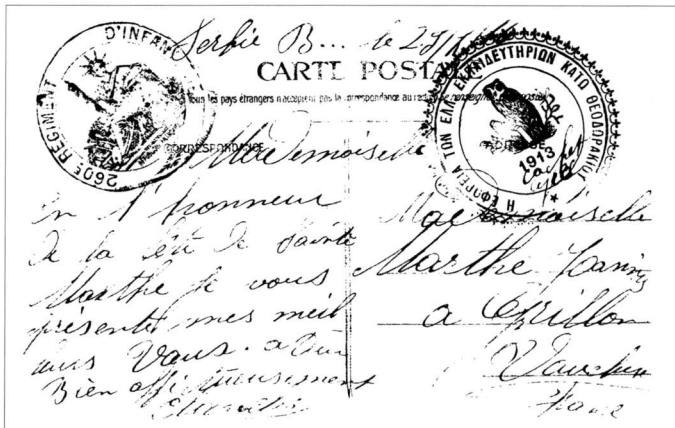 Serbie B... le 29
260E REGIMENT D'INFAN
CARTE POSTALE
Tous les pays étrangers n'acceptent pas la correspondance au
CORRESPONDANCE
Η ΕΦΟΡΕΙΑ ΤΩΝ ΕΛΛ ΕΚΠΑΙΔΕΥΤΗΡΙΩΝ ΚΑΤΩ ΘΕΟΔΩΡΑΚΙΟΥ
1913
Mademoiselle
en l'honneur
de la de sainte
Marthe je vous
présente mes meil
eurs Vœux
Bien affectueusement
Mademoiselle
Marthe
a Grillon
Vaucluse
France